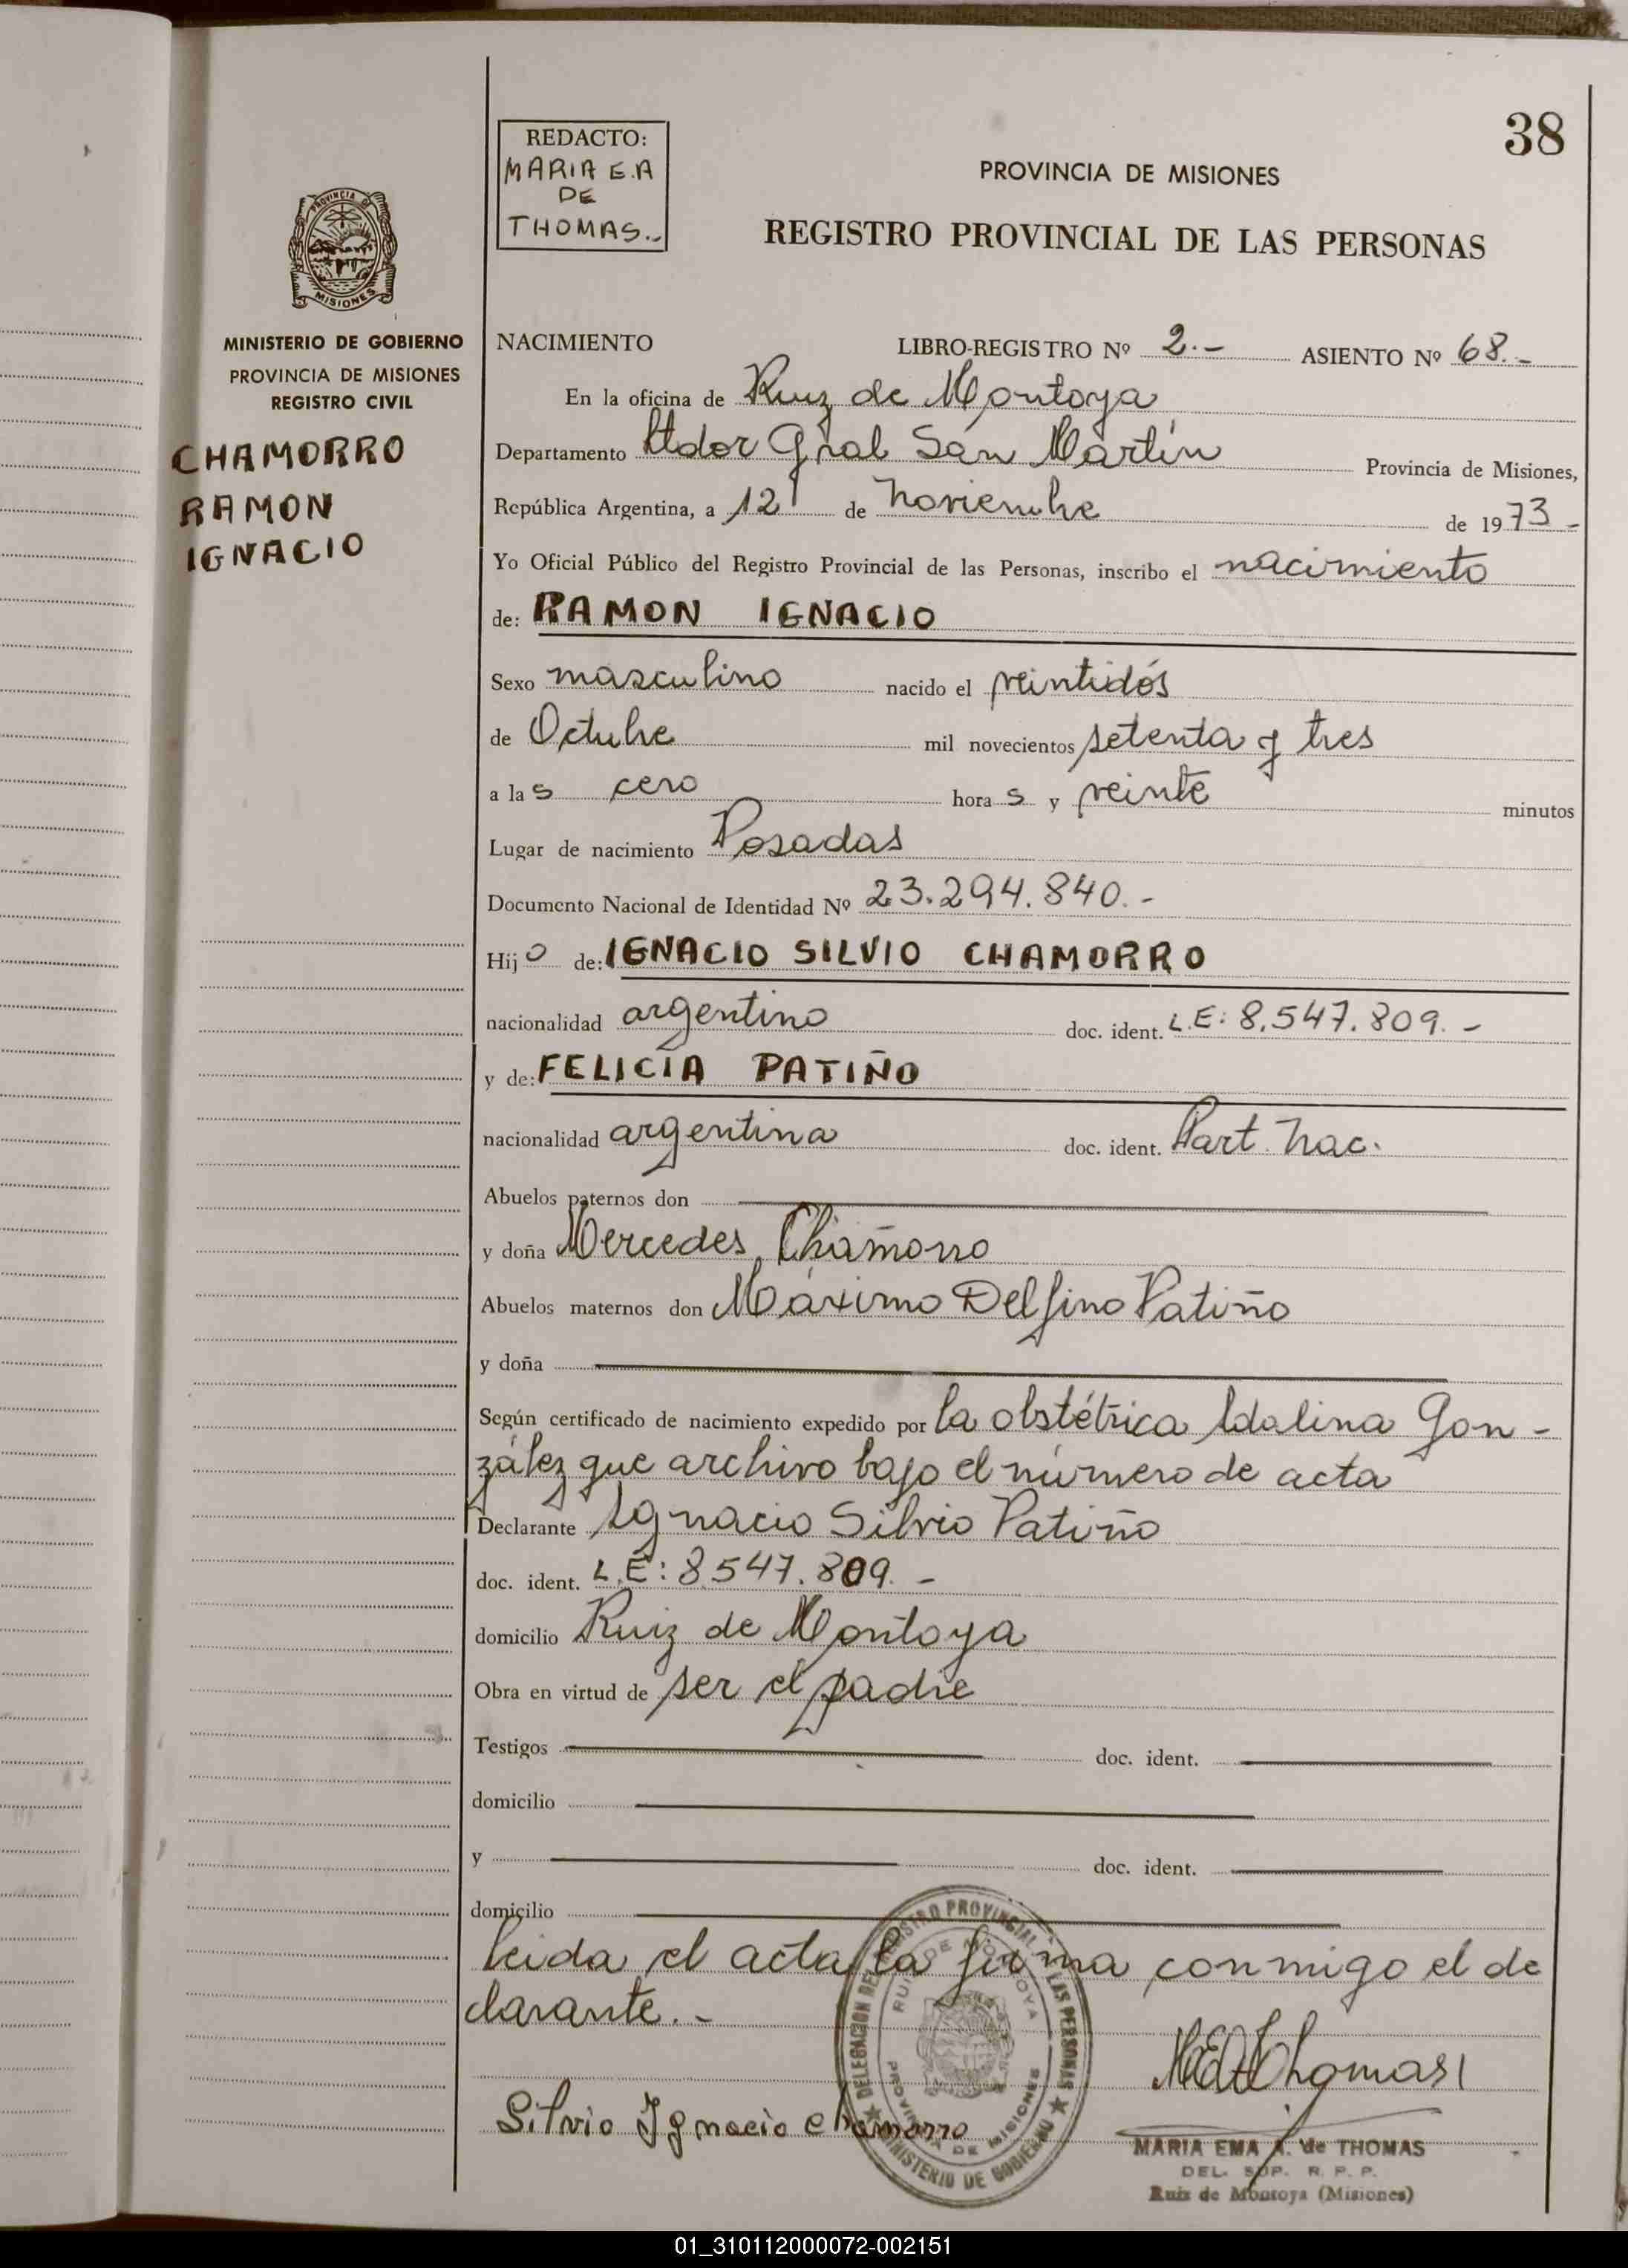 38
REDACTO:
MARIA E.A
DE
THOMAS.-
PROVINCIA DE MISIONES
REGISTRO PROVINCIAL DE LAS PERSONAS
PROVINCIA DE
MISIONES
MINISTERIO DE GOBIERNO
PROVINCIA DE MISIONES
REGISTRO CIVIL
CHAMORRO
RAMON
IGNACIO
NACIMIENTO LIBRO-REGISTRO Nº 2.- ASIENTO Nº 68.-
En la oficina de Ruiz de Montoya
Departamento Ltdor Gral San Martín Provincia de Misiones,
República Argentina, a 12 de noviembre de 1973-
Yo Oficial Público del Registro Provincial de las Personas, inscribo el nacimiento
de: RAMON IGNACIO
Sexo masculino nacido el veintidós
de Octubre mil novecientos setenta y tres
a las cero horas y veinte minutos
Lugar de nacimiento Posadas
Documento Nacional de Identidad Nº 23.294.840.-
Hijo de: IGNACIO SILVIO CHAMORRO
nacionalidad argentino doc. ident. L.E: 8.547.809.-
y de: FELICIA PATIÑO
nacionalidad argentina doc. ident. Part. Nac.
Abuelos paternos don
y doña Mercedes Chamorro
Abuelos maternos don Máximo Delfino Patiño
y doña
Según certificado de nacimiento expedido por la obstétrica Idalina Gon-
zález que archivo bajo el número de acta
Declarante Ignacio Silvio Patiño
doc. ident. L.E: 8.547.809.-
domicilio Ruiz de Montoya
Obra en virtud de ser el padre
Testigos doc. ident.
domicilio
y doc. ident.
domicilio
Leida el acta la firma conmigo el de
clarante.-
DELEGACION DEL REGISTRO PROVINCIAL DE LAS PERSONAS
RUIZ DE MONTOYA
PROVINCIA DE MISIONES
MINISTERIO DE GOBIERNO
Silvio Ignacio Chamorro
MEA de Thomas
MARIA EMA A. de THOMAS
DEL. SUP. R. P. P.
Ruiz de Montoya (Misiones)
01_310112000072-002151